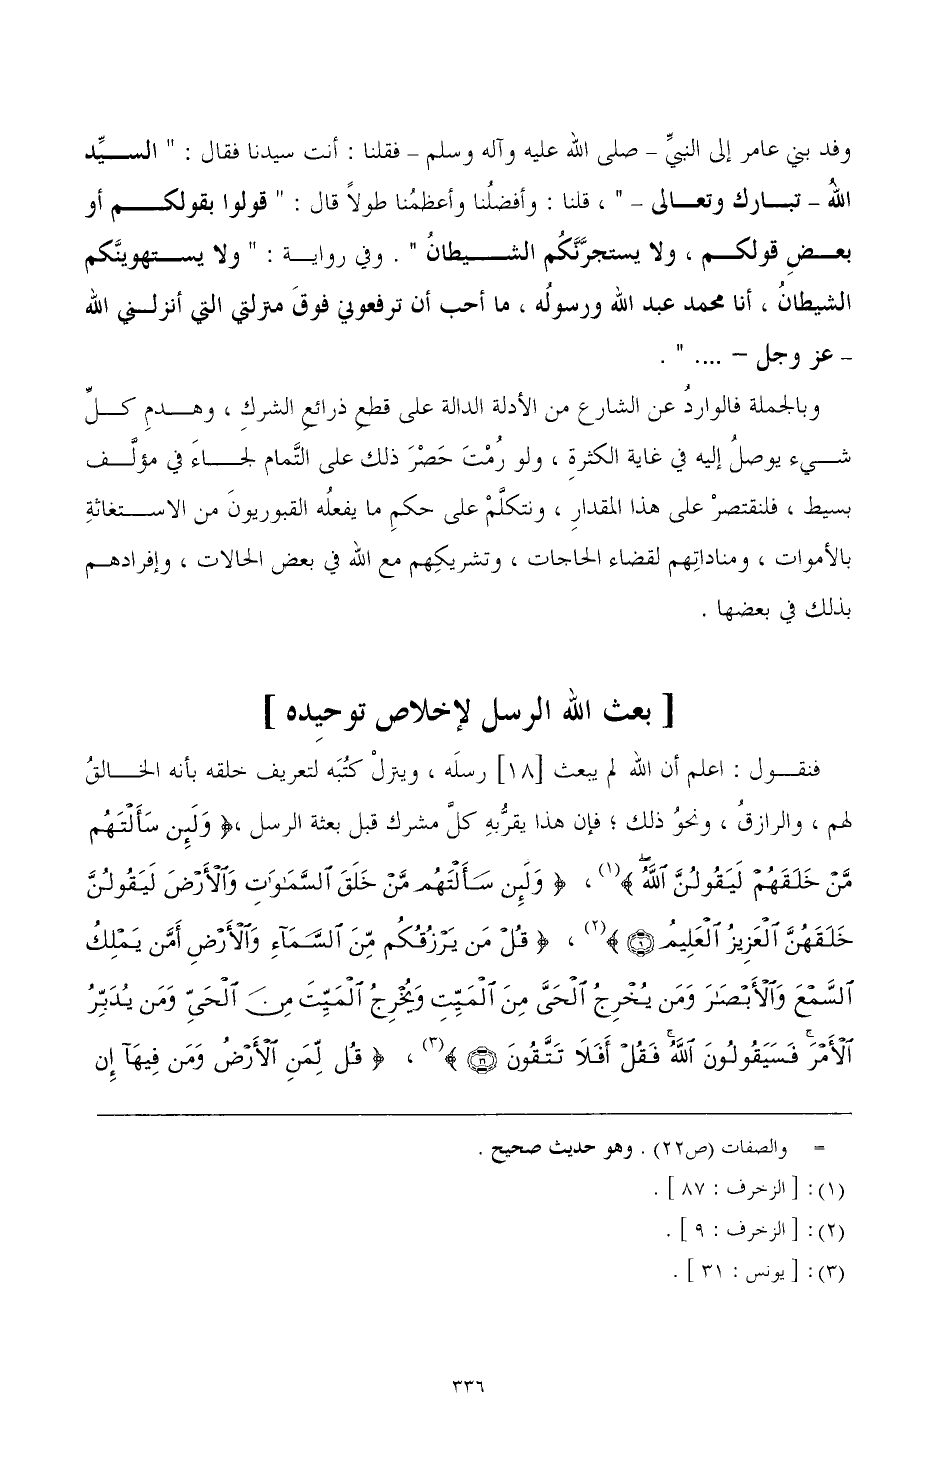 وفد بني عامر إلى النبيِّ – صلى الله عليه وآله وسلم – فقلنا : أنت سيدنا فقال : " السيِّد
اللهُ – تبارك وتعالى – " ، قلنا : وأفضلُنا وأعظمُنا طولاً قال : " قولوا بقولكم أو
بعضِ قولكم ، ولا يستجرَّنَّكُم الشيطانُ " . وفي رواية : " ولا يستهوينَّكم
الشيطانُ ، أنا محمد عبد الله ورسولُه ، ما أحب أن ترفعوني فوقَ منزلتي التي أنزلني الله
– عز وجل – .... " .
وبالجملة فالواردُ عن الشارع من الأدلة الدالة على قطعِ ذرائعِ الشركِ ، وهدمِ كلِّ
شيء يوصلُ إليه في غاية الكثرةِ ، ولو رُمْتَ حَصْرَ ذلك على التَّمام لجاءَ في مؤلَّف
بسيط ، فلنقتصرْ على هذا المقدارِ ، ونتكلَّمْ على حكمِ ما يفعلُه القبوريونَ من الاستغاثةِ
بالأموات ، ومناداتِهم لقضاء الحاجات ، وتشريكِهم مع الله في بعض الحالات ، وإفرادهم
بذلك في بعضها .
[ بعث الله الرسل لإخلاص توحيده ]
فنقول : اعلم أن الله لم يبعث [١٨] رسلَه ، وينزلْ كتُبَه لتعريف خلقه بأنه الخالقُ
لهم ، والرازقُ ، ونحوُ ذلك ؛ فإن هذا يقرُّ به كلَّ مشرك قبل بعثة الرسل ،﴿ وَلَئِن سَأَلْتَهُم
مَّنْ خَلَقَهُمْ لَيَقُولُنَّ ٱللَّهُ ﴾(١) ، ﴿ وَلَئِن سَأَلْتَهُم مَّنْ خَلَقَ ٱلسَّمَٰوَٰتِ وَٱلْأَرْضَ لَيَقُولُنَّ
خَلَقَهُنَّ ٱلْعَزِيزُ ٱلْعَلِيمُ ۝٩ ﴾(٢) ، ﴿ قُلْ مَن يَرْزُقُكُم مِّنَ ٱلسَّمَآءِ وَٱلْأَرْضِ أَمَّن يَمْلِكُ
ٱلسَّمْعَ وَٱلْأَبْصَٰرَ وَمَن يُخْرِجُ ٱلْحَىَّ مِنَ ٱلْمَيِّتِ وَيُخْرِجُ ٱلْمَيِّتَ مِنَ ٱلْحَىِّ وَمَن يُدَبِّرُ
ٱلْأَمْرَ ۚ فَسَيَقُولُونَ ٱللَّهُ ۚ فَقُلْ أَفَلَا تَتَّقُونَ ۝٣١ ﴾(٣) ، ﴿ قُل لِّمَنِ ٱلْأَرْضُ وَمَن فِيهَآ إِن
= والصفات (ص٢٢) . وهو حديث صحيح .
(١) : [ الزخرف : ٨٧ ] .
(٢) : [ الزخرف : ٩ ] .
(٣) : [ يونس : ٣١ ] .
٣٣٦